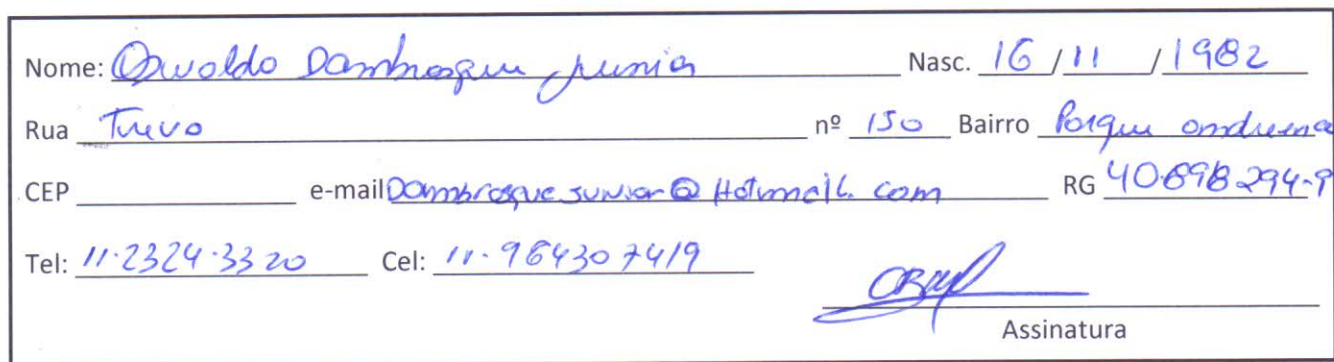 Nome: Oswaldo Dambrosque Junior Nasc. 16/11/1982
Rua Trevo nº 150 Bairro Parque andreense
CEP e-mail Dambrosquejunior@Hotmail.com RG 40.898.294-9
Tel: 11.2324.3320 Cel: 11.964307419
Assinatura